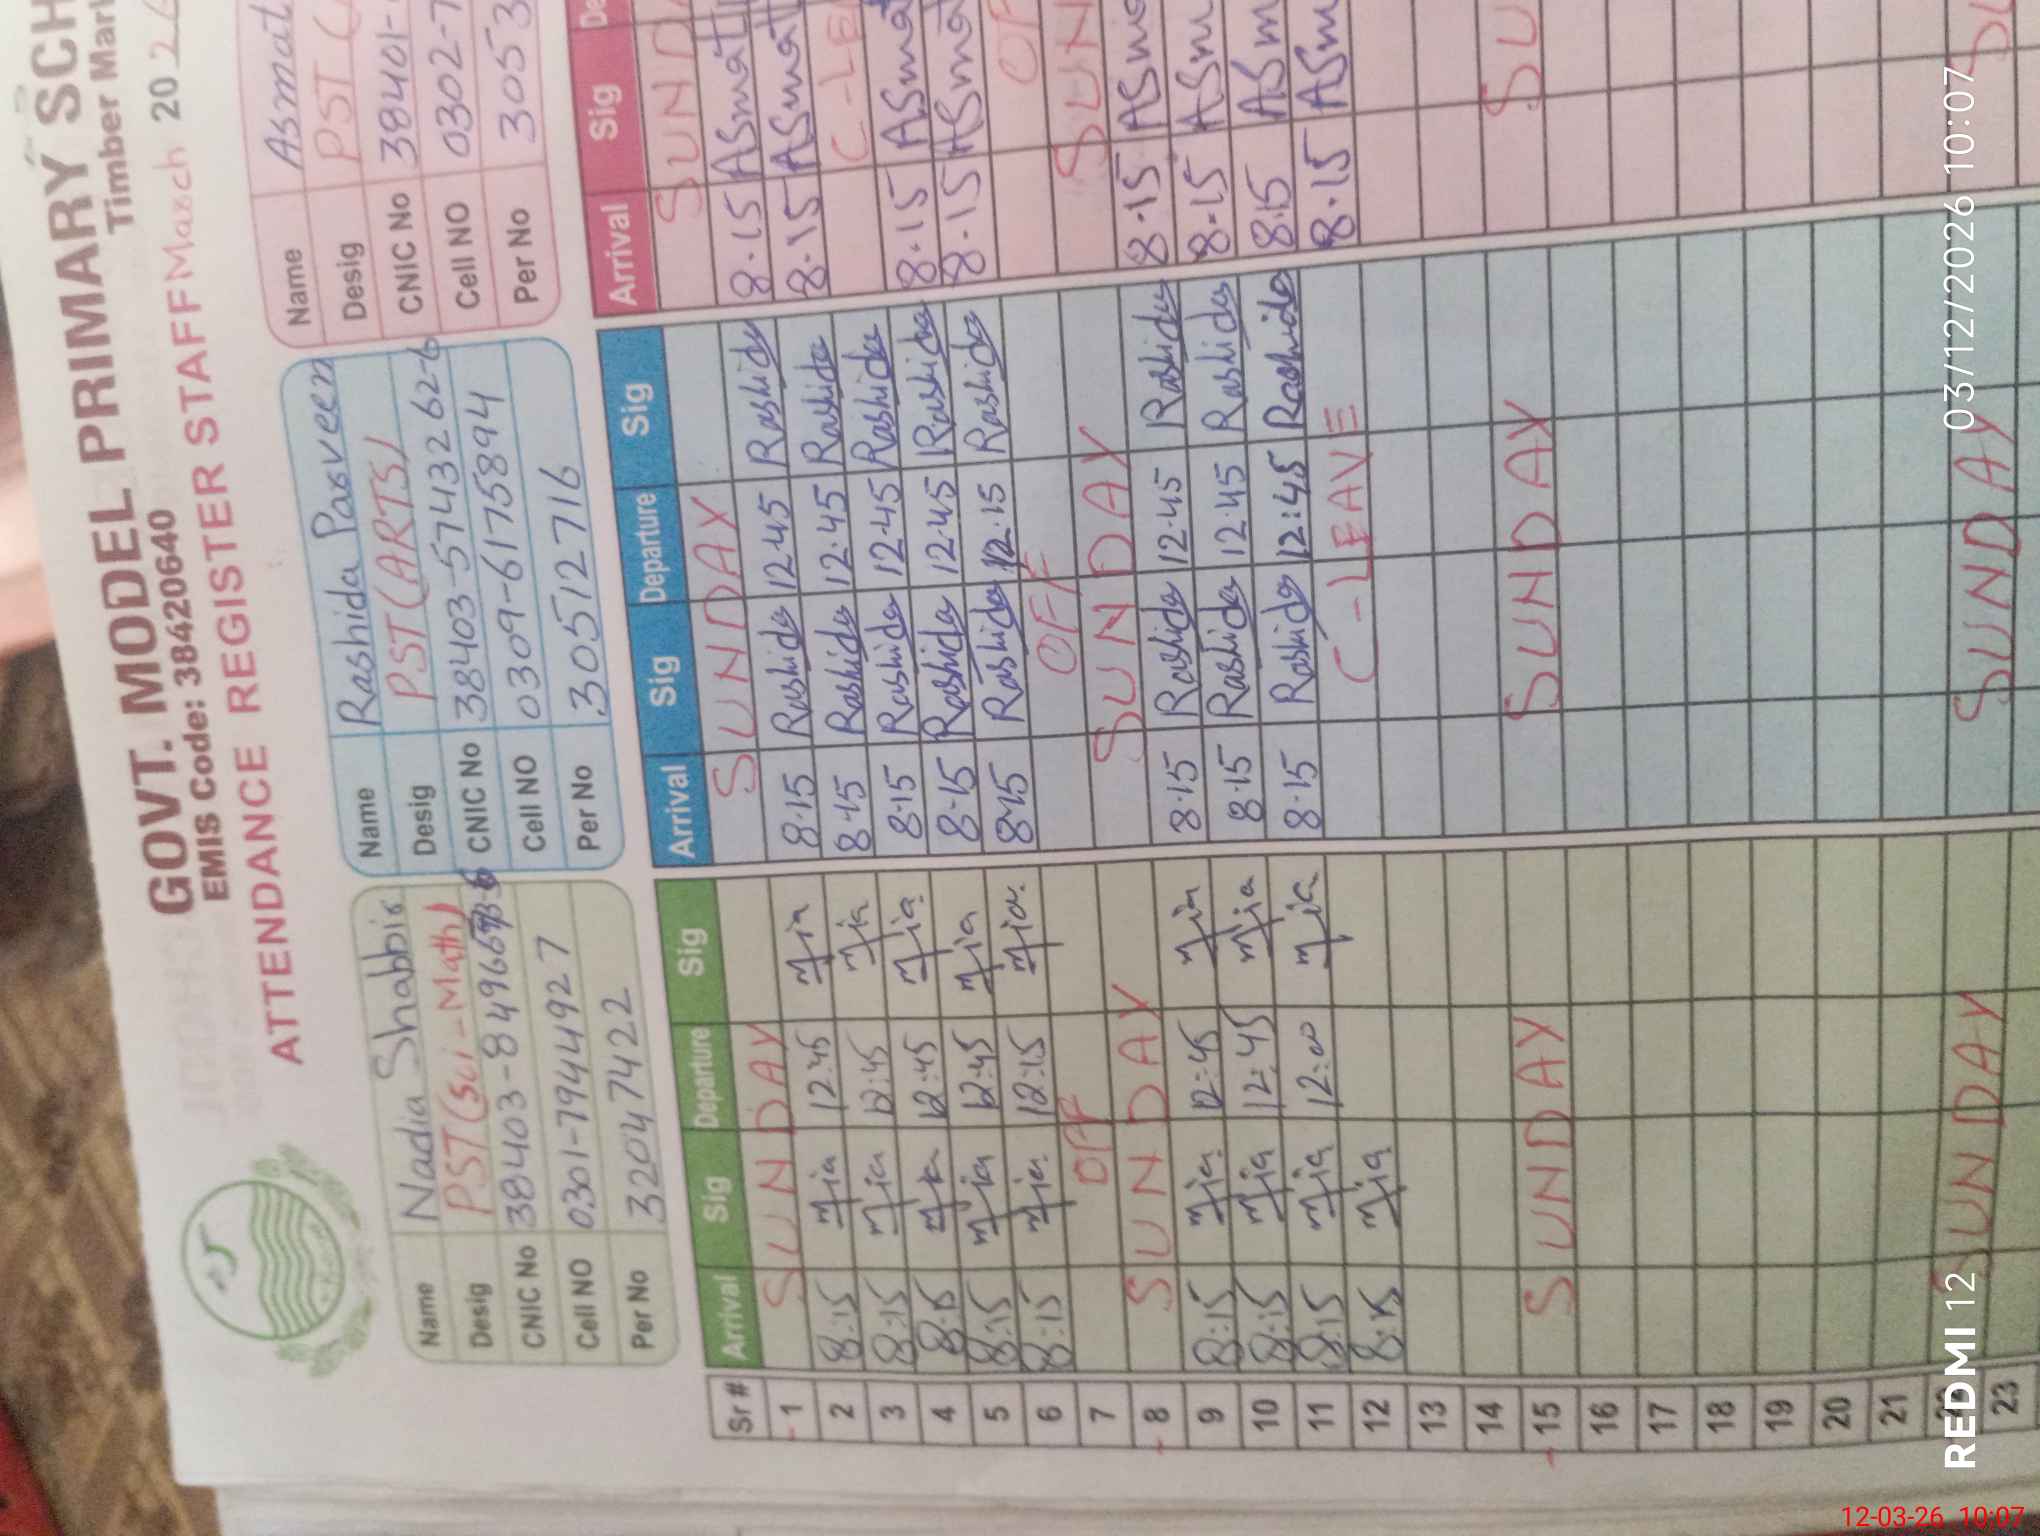 GOVT. MODEL PRIMARY SCH
EMIS Code: 38420640 Timber Mar
ATTENDANCE REGISTER STAFF March 202
Name Nadia Shabbir
Desig PST (Sci-Math)
CNIC No 38403-849669
Cell NO 0301-7944927
Per No 32047422
Name Rashida Parveen
Desig PST (ARTS)
CNIC No 38403-5743262-6
Cell NO 0309-6175894
Per No 30512716
Name Asmat
Desig PST (
CNIC No 38401-
Cell NO 0302-7
Per No 3053
Sr # Arrival Sig Departure Sig Arrival Sig Departure Sig Arrival Sig De
1 SUNDAY SUNDAY SUND
2 8:15 12:45 8.15 Rashida 12.45 Rashida 8.15 ASmat
3 8:15 12:45 8.15 Rashida 12.45 Rashida 8.15 ASmat
4 8:15 12:45 8.15 Rashida 12.45 Rashida C-LE
5 8:15 12:45 8.15 Rashida 12.45 Rashida 8.15 ASmat
6 8:15 12:15 8.15 Rashida 12.15 Rashida 8.15 ASmat
7 OFF OFF OF
8 SUNDAY SUNDAY SUN
9 8:15 12:45 8.15 Rashida 12.45 Rashida 8.15 ASma
10 8:15 12:45 8.15 Rashida 12.45 Rashida 8.15 ASm
11 8:15 12:00 8.15 Rashida 12:45 Rashida 8.15 ASm
12 8:15 C-LEAVE 8.15 ASm
13
14
15 SUNDAY SUNDAY SU
16
17
18
19
20
21
22 SUNDAY SUNDAY SU
23
REDMI 12 03/12/2026 10:07
12-03-26 10:07